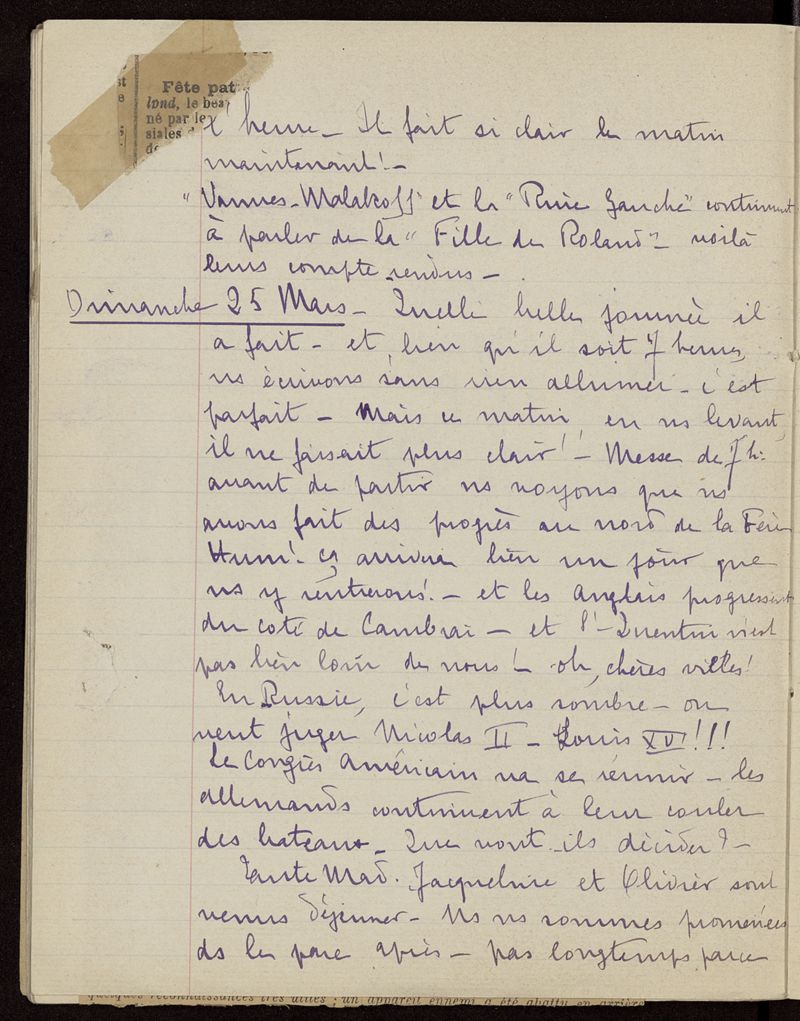 st
e
Fête pat
lond, le bea
né par le
siales d
de
l'heure _ Il fait si clair le matin
maintenant ! _
"Vanves-Malakoff" et la "Rive Gauche" continuent
à parler de la "Fille de Roland" _ voilà
leurs compte-rendus _ .
Dimanche 25 Mars _ Quelle belle journée il
a fait _ et, bien qu'il soit 7 heures,
ns écrivons sans rien allumer _ c'est
parfait _ Mais ce matin, en ns levant,
il ne faisait plus clair !! _ Messe de 7 h.
avant de partir ns voyons que ns
avons fait des progrès au nord de la Fère
Hum ! _ ça arrivera bien un jour que
ns y rentrerons ! _ et les anglais progressent
du coté de Cambrai _ et St-Quentin n'est
pas bien loin de nous ! _ oh, chères villes !
En Russie, c'est plus sombre _ on
veut juger Nicolas II _ Louis XVI !!!
Le Congrès Américain va se réunir _ les
allemands continuent à leur couler
des bateaux _ Que vont-ils décider ? _
Tante Mad. Jacqueline et Olivier sont
venus déjeuner _ Ns ns sommes promenées
ds le parc après _ pas longtemps parce
quelques reconnaissances très utiles ; un appareil ennemi a été abattu en arrière